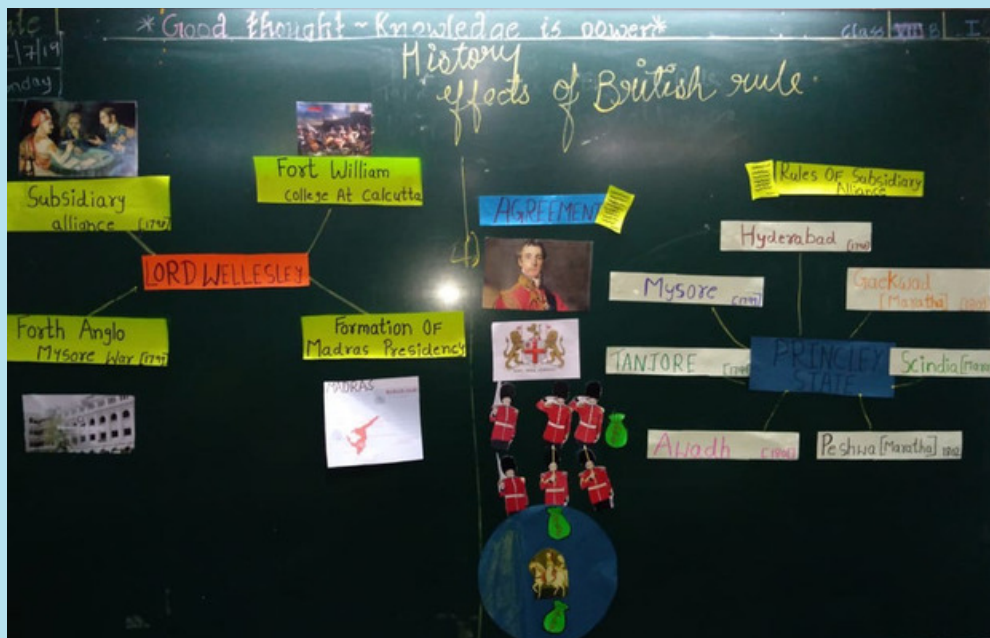 *Good thought ~ Knowledge is power*
Class VIII B
/7/19
nday
History
effects of British rule.
Subsidiary
alliance
Fort William
College At Calcutta
LORD WELLESLEY
Forth Anglo
Mysore War
Formation OF
Madras Presidency
MADRAS
AGREEMENT
Rules Of Subsidiary
Hyderabad
Mysore
Gaekwad
[Maratha]
TANJORE
PRINCLEY
STATE
Scindia [Mara
Awadh
Peshwa [Maratha] 1802